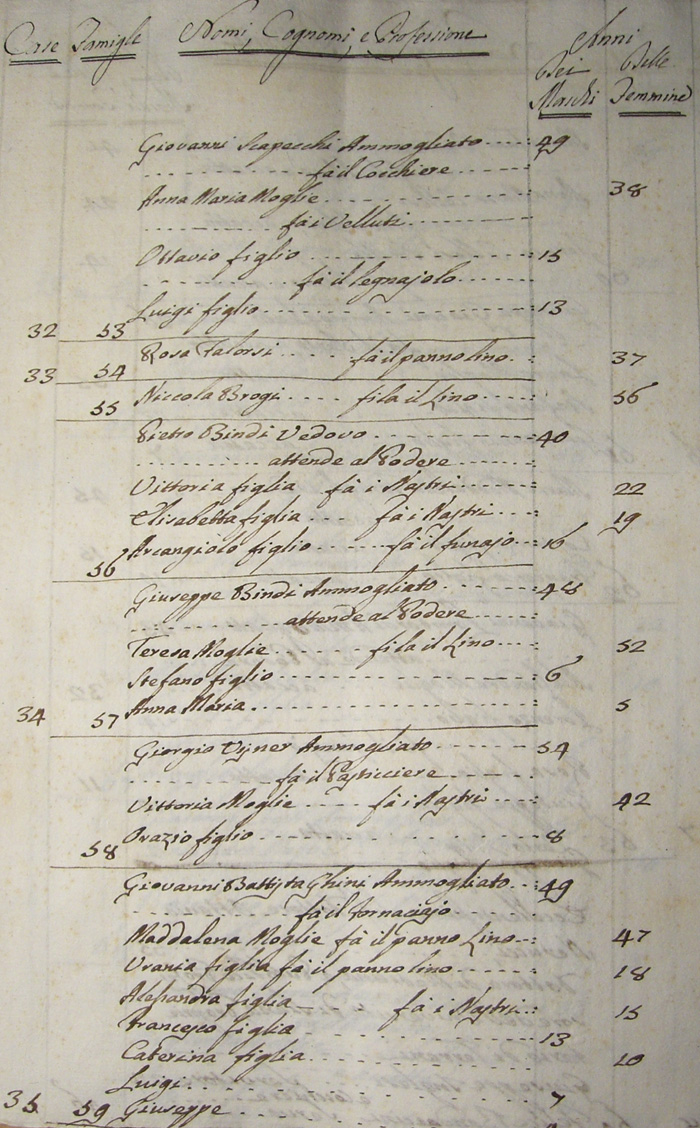 Case Famigle Nomi, Cognomi, e Professione Anni
Dei Delle
Maschi Femmine
Giovanni Scapecchi Ammogliato 49
fà il Cocchiere
Anna Maria Moglie 38
fà i Velluti
Ottavio figlio 15
fà il legnajolo
Luigi figlio 13
32 53
Rosa Falorsi fà il panno lino 37
33 54
Niccola Brogi fila il Lino 56
55
Pietro Bindi Vedovo 40
attende al Podere
Vittoria figlia fà i Nastri 22
Elisabetta figlia fà i Nastri 19
Arcangiolo figlio fà il funajo 16
56
Giuseppe Bindi Ammogliato 48
attende al Podere
Teresa Moglie fila il Lino 52
Stefano figlio 6
Anna Maria 5
34 57
Giorgio Ujner Ammogliato 54
fà il Pasticciere
Vittoria Moglie fà i Nastri 42
Orazio figlio 8
58
Giovanni Battista Ghini Ammogliato 49
fà il fornaciajo
Maddalena Moglie fà il panno Lino 47
Urania figlia fà il panno lino 18
Alessandra figlia fà i Nastri 15
Francesco figlia 13
Caterina figlia 10
Luigi
35 59 Giuseppe 7